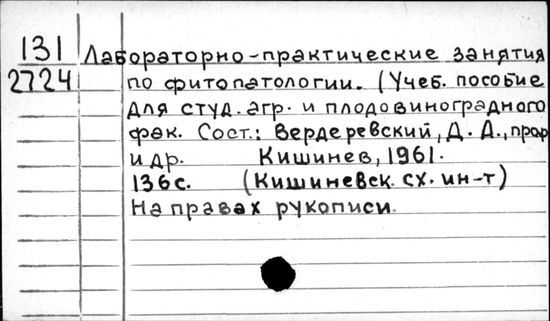 131 Лабораторно-практические занятия
2724 по фитопатологии. (Учеб. пособие
для студ. агр. и плодовиноградного
фак. Сост.: Вердеревский, Д. Д., проф
и др. Кишинев, 1961.
136с. (Кишиневск. сх. ин-т)
На правах рукописи.